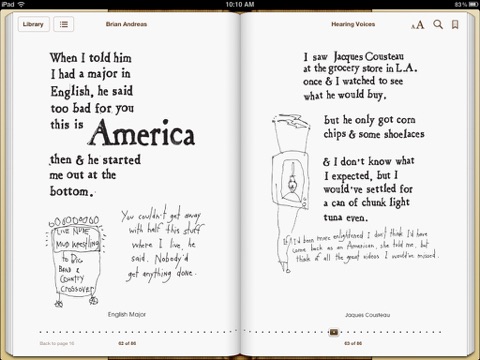 iPad
10:10 AM
83%
Library
Brian Andreas
Hearing Voices
AA
When I told him
I had a major in
English, he said
too bad for you
this is America
then & he started
me out at the
bottom.
LIVE NUDE
MUD WRESTLING
to Big
Band &
COUNTRY
CROSSOVER
You couldn't get away
with half this stuff
where I live, he
said. Nobody'd
get anything done.
English Major
Back to page 16
62 of 86
I saw Jacques Cousteau
at the grocery store in L.A.
once & I watched to see
what he would buy,
but he only got corn
chips & some shoelaces
& I don't know what
I expected, but I
would've settled for
a can of chunk light
tuna even.
If I'd been more enlightened I don't think I'd have
come back as an American, she told me, but
think of all the great videos I would've missed.
Jaques Cousteau
63 of 86